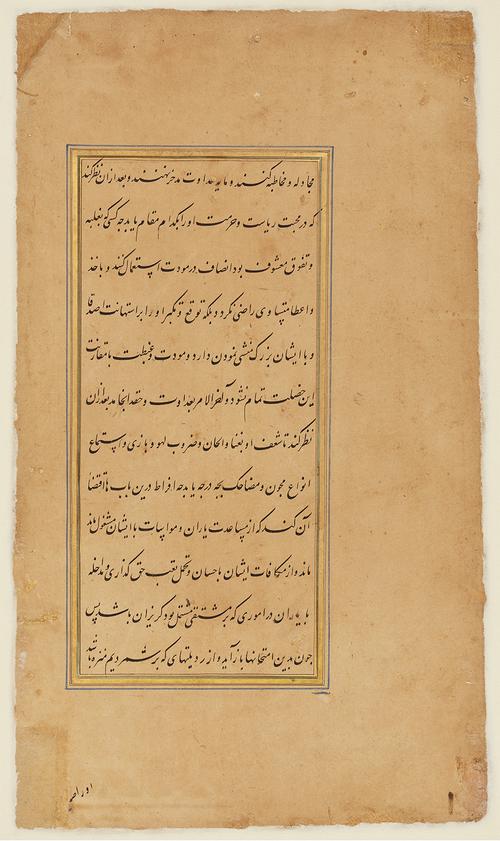 مجادله و مخاطبه کنند و مایه عداوت مدخر نهند و بعد ازان نظر کند
که در محبت ریاست و حرمت او را بکدام مقام یابد جه کسی که بغلبه
و تفوق مشعوف بود انصاف در مودت استعمال نکند و باخذ
و اعطا متساوی راضی نکردد بلکه توقع و تکبر او را بر استهانت اصدقا
و با ایشان بزرک منشی نمودن دارد و مودت و غبطت با مقارنت
این خصلت تمام نشود و لا آخر الامر بعداوت و حقد انجامد بعد ازان
نظر کند تا شعف او بغنا و الحان و ضروب لهو و بازی و استماع
انواع مجون و مضاحک بجه درجه یابد جه افراط درین باب اقتضا
آن کند که از مساعدت یاران و مواسات با ایشان مشغول ماند
ماند و از مکافات ایشان باحسان و تحمل تعب حق کذاری و مداخله
با یاران در اموری که بر مشقتی مشتمل بود کریزان باشد پس
جون بدین امتحانها باز آید و از رذیلتهای که برشمردیم منزه باشد
او را